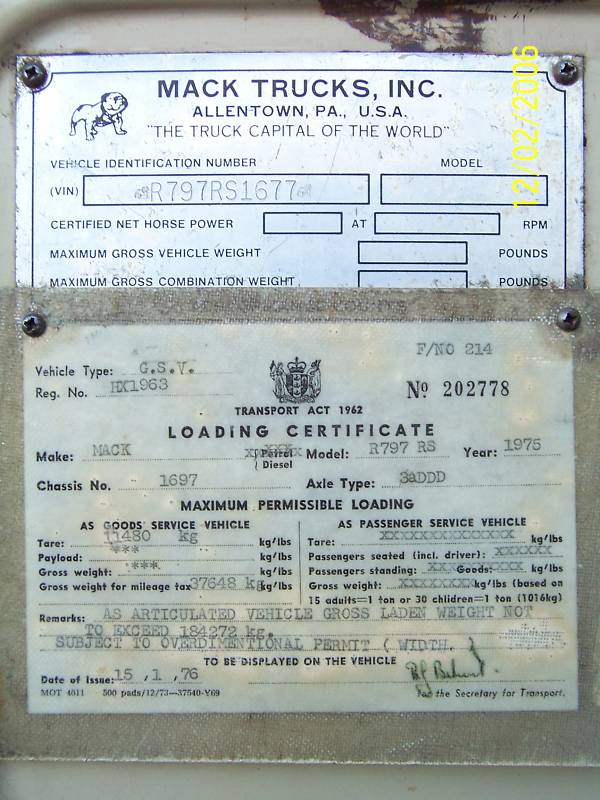 12/02/2006
MACK TRUCKS, INC.
ALLENTOWN, PA., U.S.A.
"THE TRUCK CAPITAL OF THE WORLD"
VEHICLE IDENTIFICATION NUMBER MODEL
(VIN) R797RS1677
CERTIFIED NET HORSE POWER AT RPM
MAXIMUM GROSS VEHICLE WEIGHT POUNDS
MAXIMUM GROSS COMBINATION WEIGHT POUNDS
F/NO 214
Vehicle Type: G.S.V.
Reg. No. HX1963 Nº 202778
TRANSPORT ACT 1962
LOADING CERTIFICATE
Make: MACK Petrol Diesel Model: R797 RS Year: 1975
Chassis No. 1697 Axle Type: 3aDDD
MAXIMUM PERMISSIBLE LOADING
AS GOODS SERVICE VEHICLE AS PASSENGER SERVICE VEHICLE
Tare: 11480 kg kg/lbs Tare: XXXXXXXXXXXXXX kg/lbs
Payload: *** kg/lbs Passengers seated (incl. driver): XXXXXX
Gross weight: *** kg/lbs Passengers standing: Goods: kg/lbs
Gross weight for mileage tax 37648 kg kg/lbs Gross weight: XXXXXXXX kg/lbs (based on
15 adults=1 ton or 30 children=1 ton (1016kg)
Remarks: AS ARTICULATED VEHICLE GROSS LADEN WEIGHT NOT
TO EXCEED 184272 kg.
SUBJECT TO OVERDIMENTIONAL PERMIT ( WIDTH. )
TO BE DISPLAYED ON THE VEHICLE
Date of Issue: 15 ,1 ,76
MOT 4011 500 pads/12/73—37540-Y69 For the Secretary for Transport.